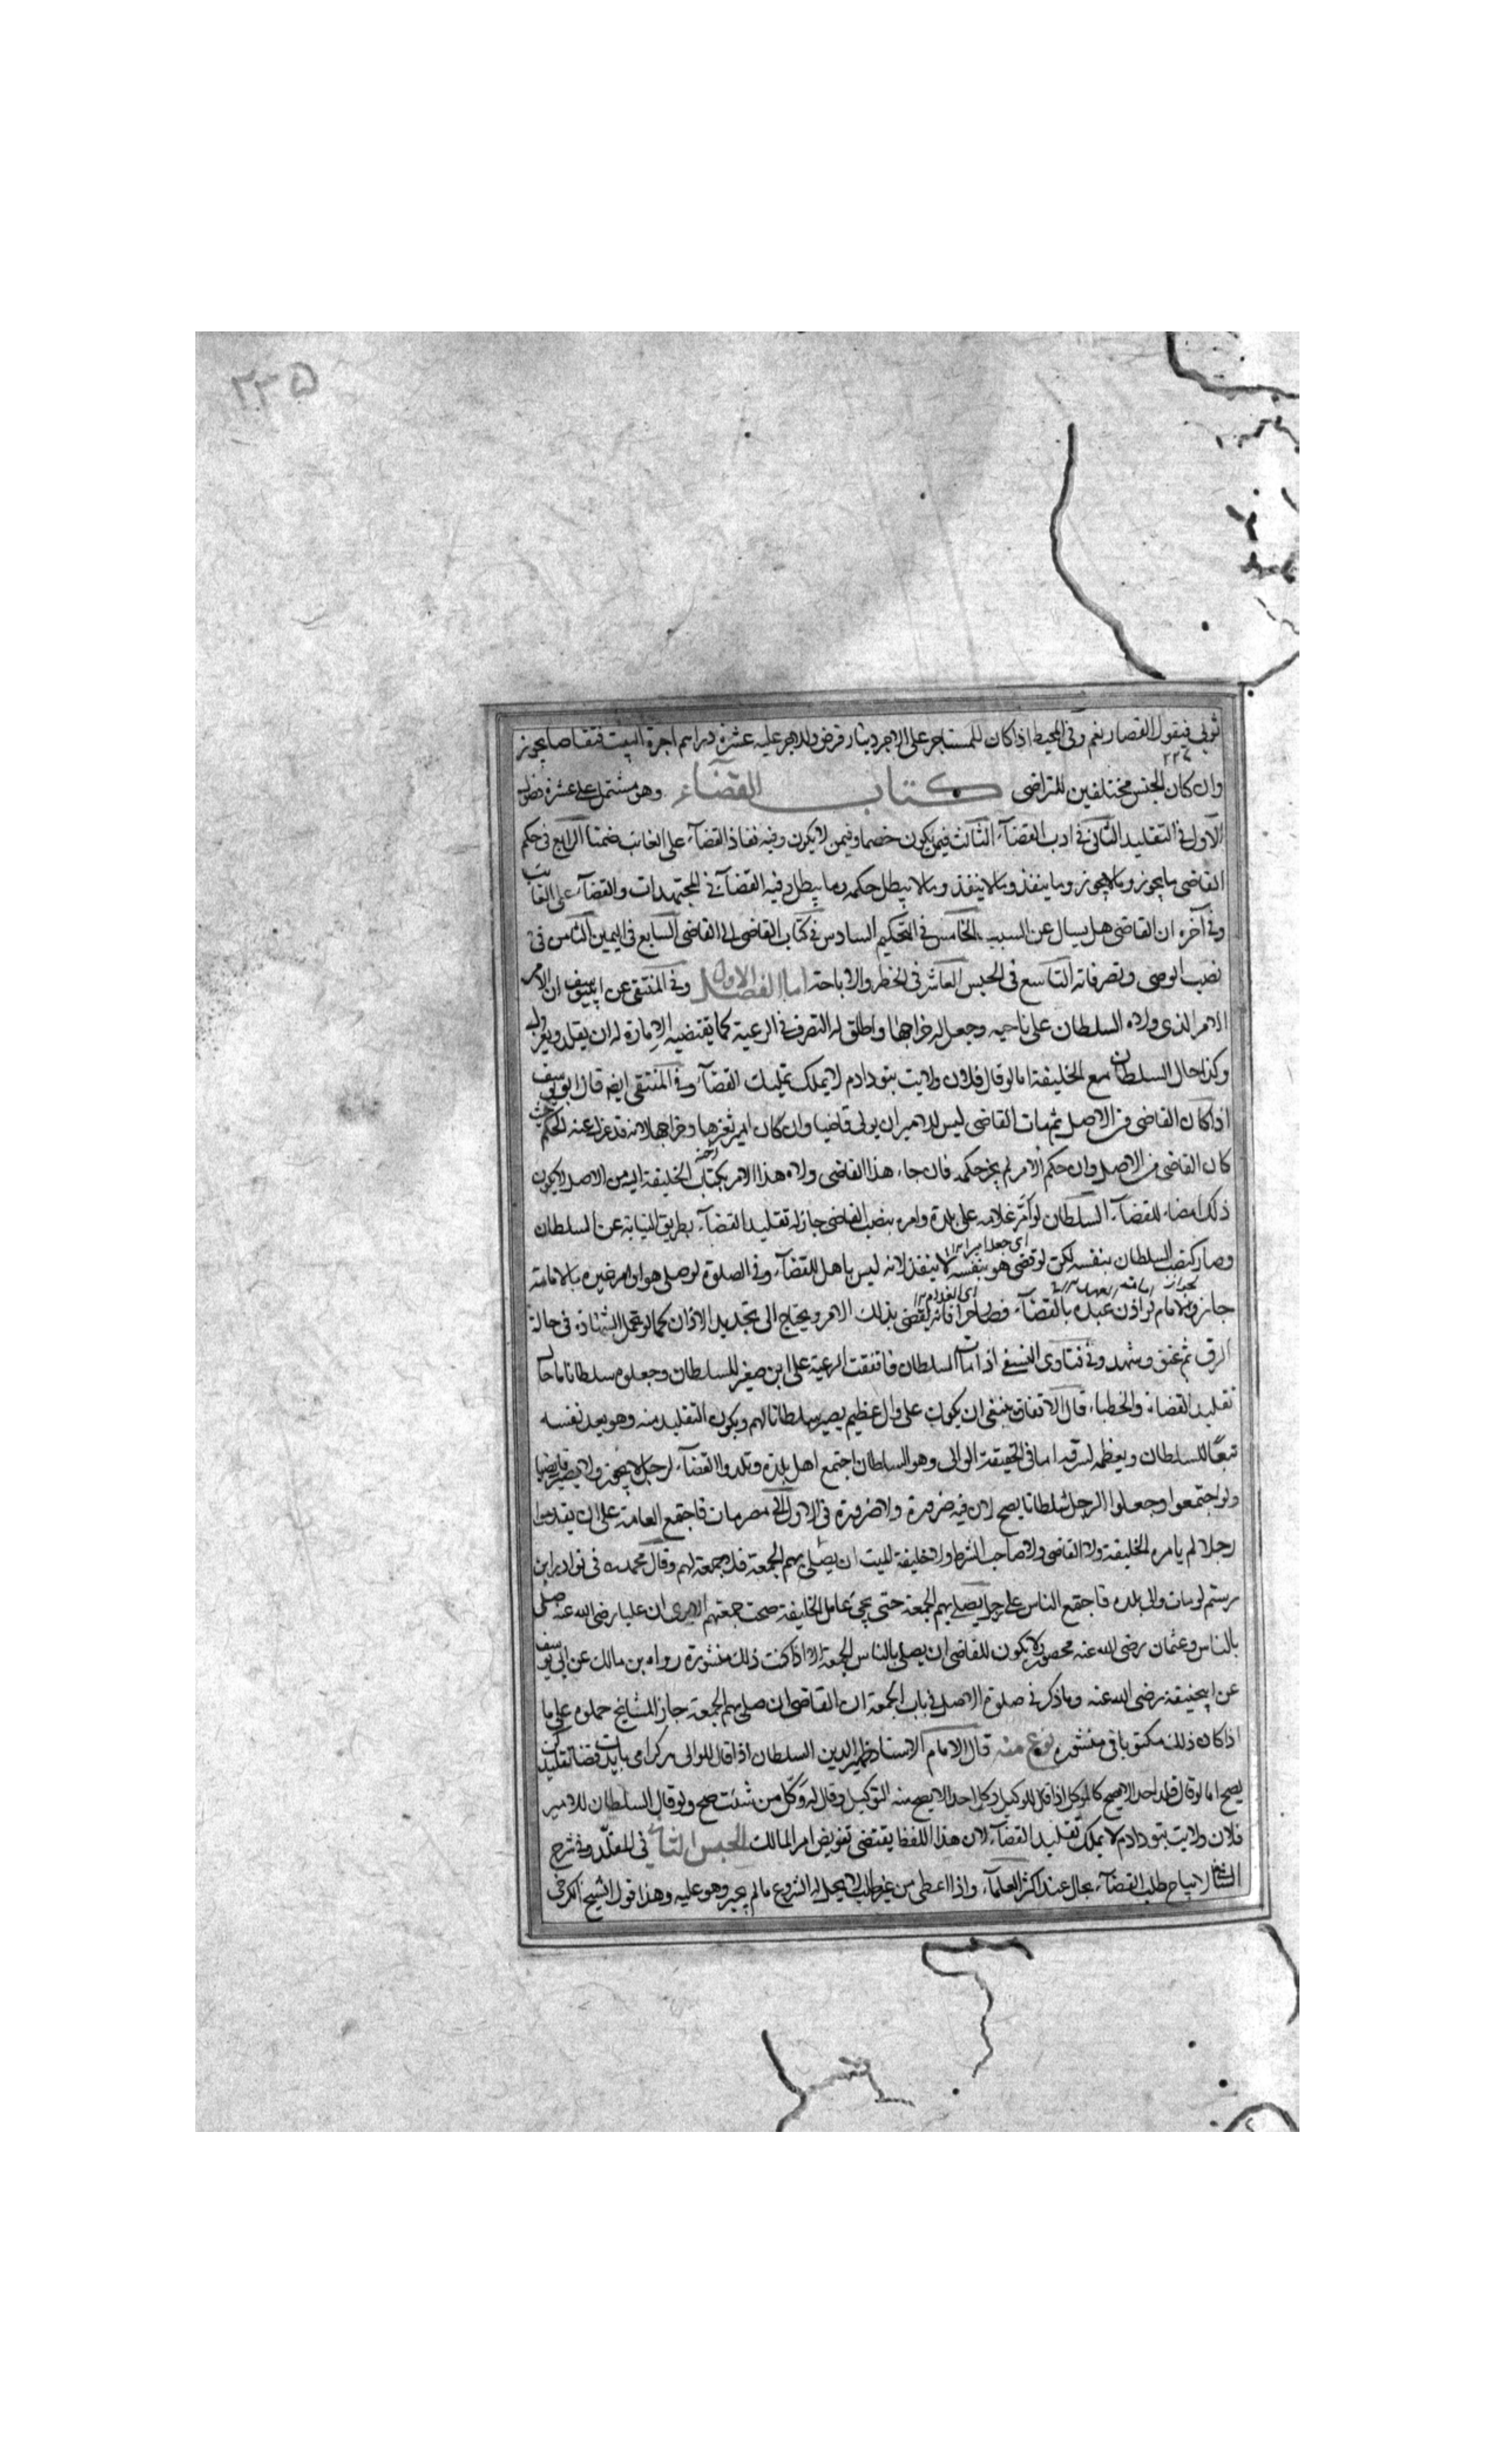 ٢٣۵
ثوبي فيقول القصار نعم وفي المحيط اذا كان للمستاجر على الاجر دينار قرض وللاجر عليه عشرة دراهم اجرة البيت فتقاصا يجوز
وان كان الجنس مختلفين للتراضي كتاب القضاء وهو مشتمل على عشرة فصول
الاول في التقليد الثاني في ادب القضاء الثالث فيمن يكون خصما وفيمن لا يكون وفيه نفاذ القضاء على الغائب ضمنا الرابع في حكم
القاضي ما يجوز وما لا يجوز وما ينفذ وما لا ينفذ وما لا يبطل حكمه وما يبطل وفيه القضاء في المجتهدات والقضاء على الغائب
وفي آخره ان القاضي هل يسال عن السبب الخامس في التحكيم السادس في كتاب القاضي الى القاضي السابع في اليمين الثامن في
نصب الوصي وتصرفاته التاسع في الحبس العاشر في الحظر والاباحة اما الفصل الاول وفي المنتقى عن ابييوسف ان الامر
الامر الذي ولاه السلطان على ناحيه وجعل له خراجها واطلق له التصرف في الرعية كما تقتضيه الإمارة له ان يقلد ويعزل
وكذا حال السلطان مع الخليفة اما لو قال فلان ولايت بتو دادم لا يملك تقليد القضاء وفي المنتقى ايضا قال ابو يوسف
اذا كان القاضي من الاصل ثم مات القاضي ليس للامير ان يولي قاضيا وان كان امير عشرها وخراجها لانه قد عزل عنه الحكم حيث
كان القاضي من الاصل وان حكم الامر لم يجز حكمه فان جاء هذا القاضي ولاه هذا الامر بكتاب الخليفة اليه من الاصل لا يكون
ذلك امضاء للقضاء السلطان لو امر غلامه على بلدة وامره بنصب القاضي جاز له تقليد القضاء بطريق النيابة عن السلطان
وصار كنصب السلطان بنفسه لكن لو قضى هو بنفسه لا ينفذ لانه ليس باهل للقضاء وفي الصلوة لو صلى هو او امر غيره بالامامة
جاز والامام لو اذن عبده بالقضاء فصار حرا فانه يقضي بذلك الامر ويحتاج الى تجديد الاذان كما لو تحمل الشهادة في حالة
الرق ثم عتق وشهد وفي فتاوى النسفي اذا مات السلطان فاتفقت الرعية على ابن صغير للسلطان وجعلوه سلطانا ما حال
تقليد القضاة والخطباء قال الاتفاق ينبغي ان يكون على وال عظيم يصير سلطانا لهم ويكون التقليد منه وهو يعد نفسه
تبعا للسلطان ويعظمه لشرفه اما في الحقيقة الوالي وهو السلطان اجتمع اهل بلدة وقلدوا القضاء لرجل لا يجوز ولا يصير قاضيا
ولو اجتمعوا وجعلوا الرجل سلطانا يصح لان فيه ضرورة ولا ضرورة في الاول مصر مات فاجتمع العامة على ان يقدموا
رجلا لم يامره الخليفة ولا القاضي ولا صاحب الشرط ولا خليفة الميت ان يصلي بهم الجمعة فلا جمعة لهم وقال محمد في نوادر ابن
رستم لو مات والي بلده فاجتمع الناس على رجل يصلي بهم الجمعة حتى يجئ عامل الخليفة صحت جمعتهم الا يرى ان عليا رضي الله عنه صلى
بالناس وعثمان رضي الله عنه محصور ولا يكون للقاضي ان يصلي بالناس الجمعة الا اذا كتب ذلك منشوره رواه بن مالك عن ابي يوسف
عن ابيحنيفة رضي الله عنه وما ذكر في صلوة الاصل في باب الجمعة ان القاضي ان صلى بهم الجمعة جاز المشايخ حملوه على ما
اذا كان ذلك مكتوبا في منشوره نوع منه قال الامام الاستاد ظهير الدين السلطان اذا قال للوالي هر كرا مي بايدت قضا تقليد كن
يصح اما لو قال قلد احدا لا يصح كالموكل اذا قال للوكيل وكل احدا لا يصح منه التوكيل وقال له وكّل من شئت صح ولو قال السلطان للامير
فلان ولايت بتو دادم لا يملك تقليد القضاء لان هذا اللفظ يقتضي تفويض امر المالك الجنس الثاني في المقلّد وفي شرح
لا يباح طلب القضاء بحال عند اكثر العلماء واذا اعطى من غير طلب لا يحل له الشروع ما لم يجبر وهو عليه وهذا قول الشيخ الكرخي